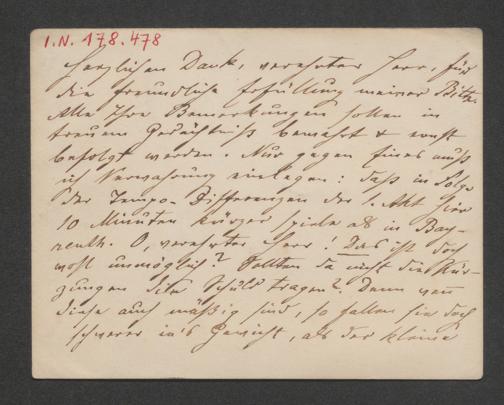 I.N. 178.478
Herzlichen Dank, verehrter Herr, für
die freundliche Erfüllung meiner Bitte.
Alle Ihre Bemerkungen sollen in
treuem Gedächtniß bewahrt & ernst
befolgt werden. Nur gegen Eines muß
ich Verwahrung einlegen: daß in Folge
der Tempo-Differenzen der 1. Akt hier
10 Minuten kürzer spiele als in Bay-
reuth. O, verehrter Herr! Das ist doch
wohl unmöglich? Sollten da nicht die Kür-
zungen die Schuld tragen? Denn wenn
diese auch mäßig sind, so fallen sie doch
schwerer in's Gewicht, als der kleine